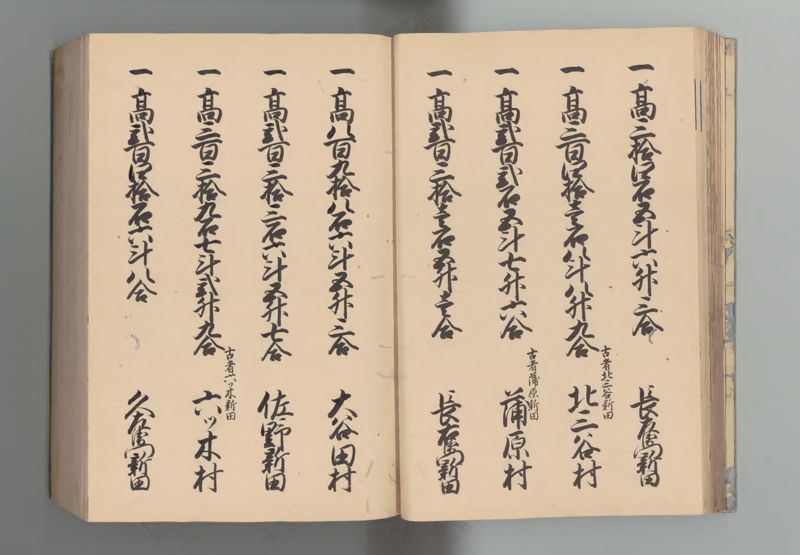 一 高三拾四石五斗六升三合 長右衛門新田
古者北三谷新田
一 高三百四拾壱石八斗八升九合 北三谷村
古者蒲原新田
一 高弐百弐石五斗七升六合 蒲原村
一 高弐百三拾壱石五升壱合 長左衛門新田
一 高八百九拾八石六斗五升三合 大谷田村
一 高弐百三拾三石六斗五升七合 佐野新田
古者六ッ木新田
一 高三百三拾九石七斗弐升九合 六ッ木村
一 高弐百四拾石六斗八合 久左衛門新田